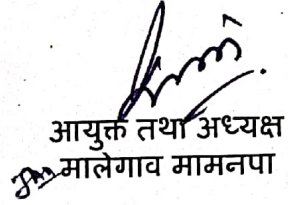 आयुक्त तथा अध्यक्ष
मालेगाव मामनपा